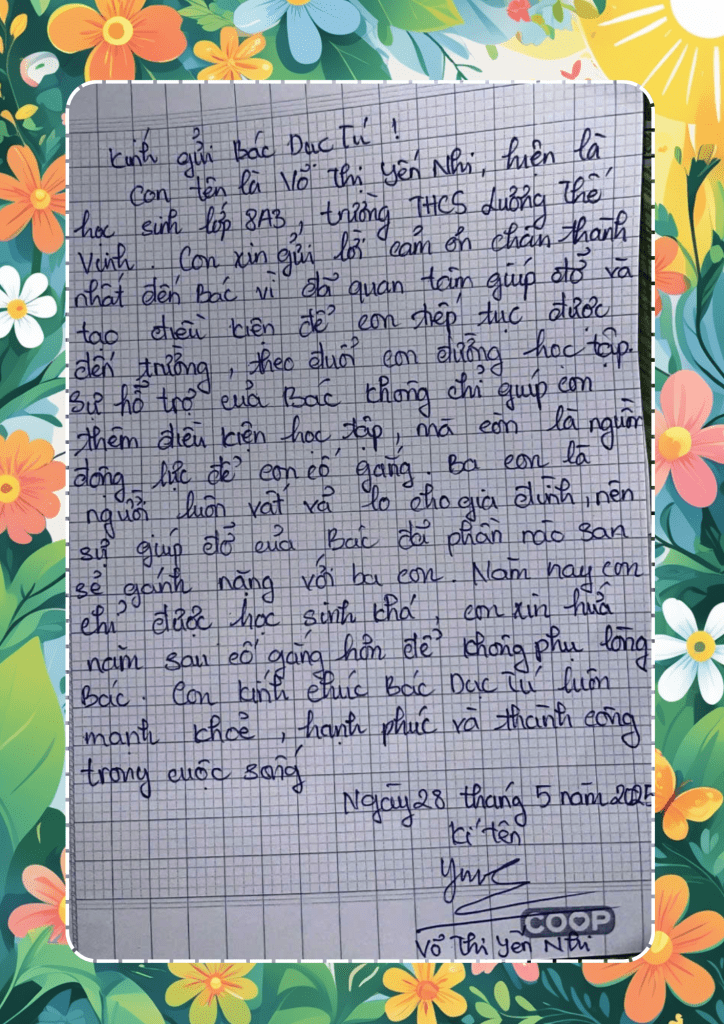 Kính gửi Bác Dục Tú !
Con tên là Võ Thị Yến Nhi, hiện là
học sinh lớp 8A3, trường THCS Lương Thế
Vinh. Con xin gửi lời cảm ơn chân thành
nhất đến Bác vì đã quan tâm giúp đỡ và
tạo điều kiện để con tiếp tục được
đến trường, theo đuổi con đường học tập.
Sự hỗ trợ của Bác không chỉ giúp con
thêm điều kiện học tập, mà còn là nguồn
động lực để con cố gắng. Ba con là
người luôn vất vả lo cho gia đình, nên
sự giúp đỡ của Bác đã phần nào san
sẻ gánh nặng với ba con. Năm nay con
chỉ được học sinh khá, con xin hứa
năm sau cố gắng hơn để không phụ lòng
Bác. Con kính chúc Bác Dục Tú luôn
mạnh khoẻ, hạnh phúc và thành công
trong cuộc sống
Ngày 28 tháng 5 năm 2025
Kí tên
Võ Thị Yến Nhi
COOP